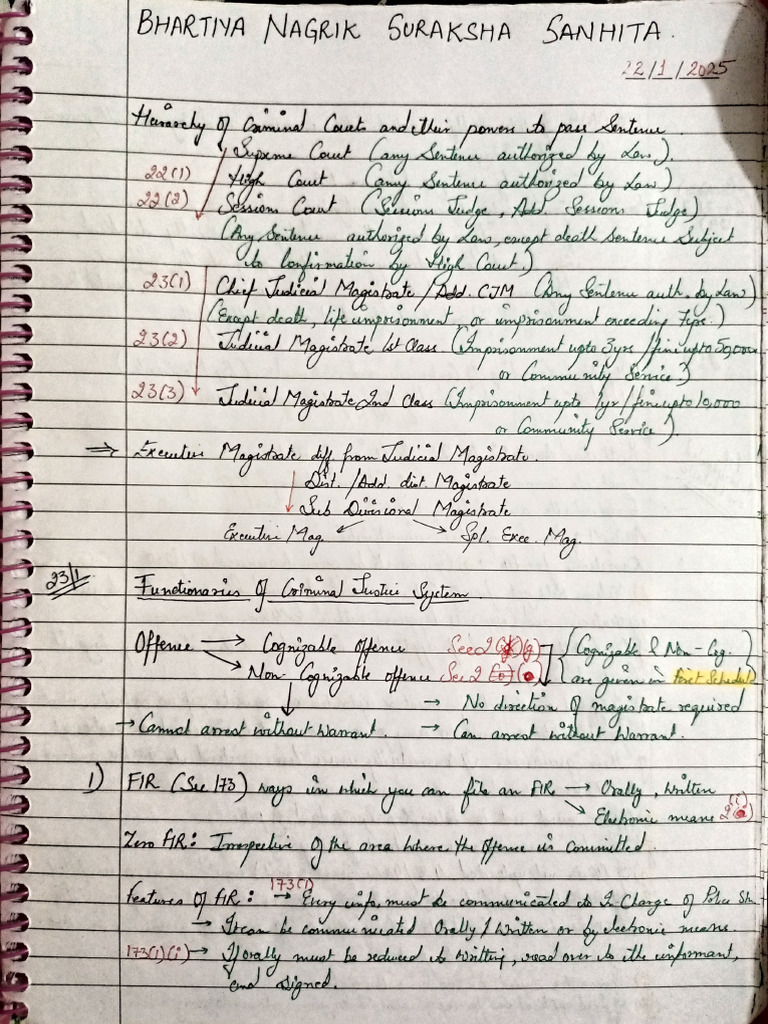 BHARTIYA NAGRIK SURAKSHA SANHITA.
22/1/2025
Hierarchy of Criminal Courts and their powers to pass Sentence.
Supreme Court (any Sentence authorized by Law).
22(1) High Court (any Sentence authorized by Law)
22(2) Sessions Court (Sessions Judge, Add. Sessions Judge)
(Any Sentence authorized by Law, except death sentence Subject
to Confirmation by High Court.)
23(1) Chief Judicial Magistrate / Add. CJM (Any Sentence auth. by Law)
(Except death, life imprisonment, or imprisonment exceeding 7yrs.)
23(2) Judicial Magistrate 1st Class (Imprisonment upto 3yrs / fine upto 50,000
or Community Service)
23(3) Judicial Magistrate 2nd Class (Imprisonment upto 1yr / fine upto 10,000
or Community Service).
⇒ Executive Magistrate diff from Judicial Magistrate.
Dist. / Add. dist. Magistrate
↓ Sub Divisional Magistrate
Executive Mag. ↙ ↘ Spl. Exec. Mag.
23/1 Functionaries of Criminal Justice System.
Offence → Cognizable offence Sec 2 (g) { Cognizable & Non-Cog.
↘ Non-Cognizable offence Sec 2 (o) are given in First Schedule
→ No direction of magistrate required
→ Cannot arrest without Warrant. → Can arrest without Warrant.
1) FIR (Sec 173) ways in which you can file an FIR → Orally, Written
↘ Electronic means 2(i)
Zero FIR: Irrespective of the area where the offence is committed.
173(1)
Features of FIR: → Every info. must be communicated to In Charge of Police Stn.
→ It can be communicated Orally / Written or by electronic means.
173(1)(i) → If orally must be reduced to writing, read over to the informant,
and signed.